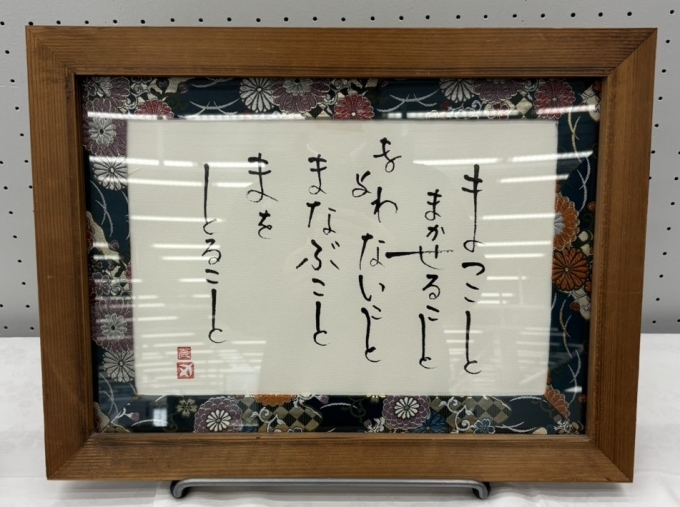 まつこと
まかせること
まよわないこと
まなぶこと
まを
とること